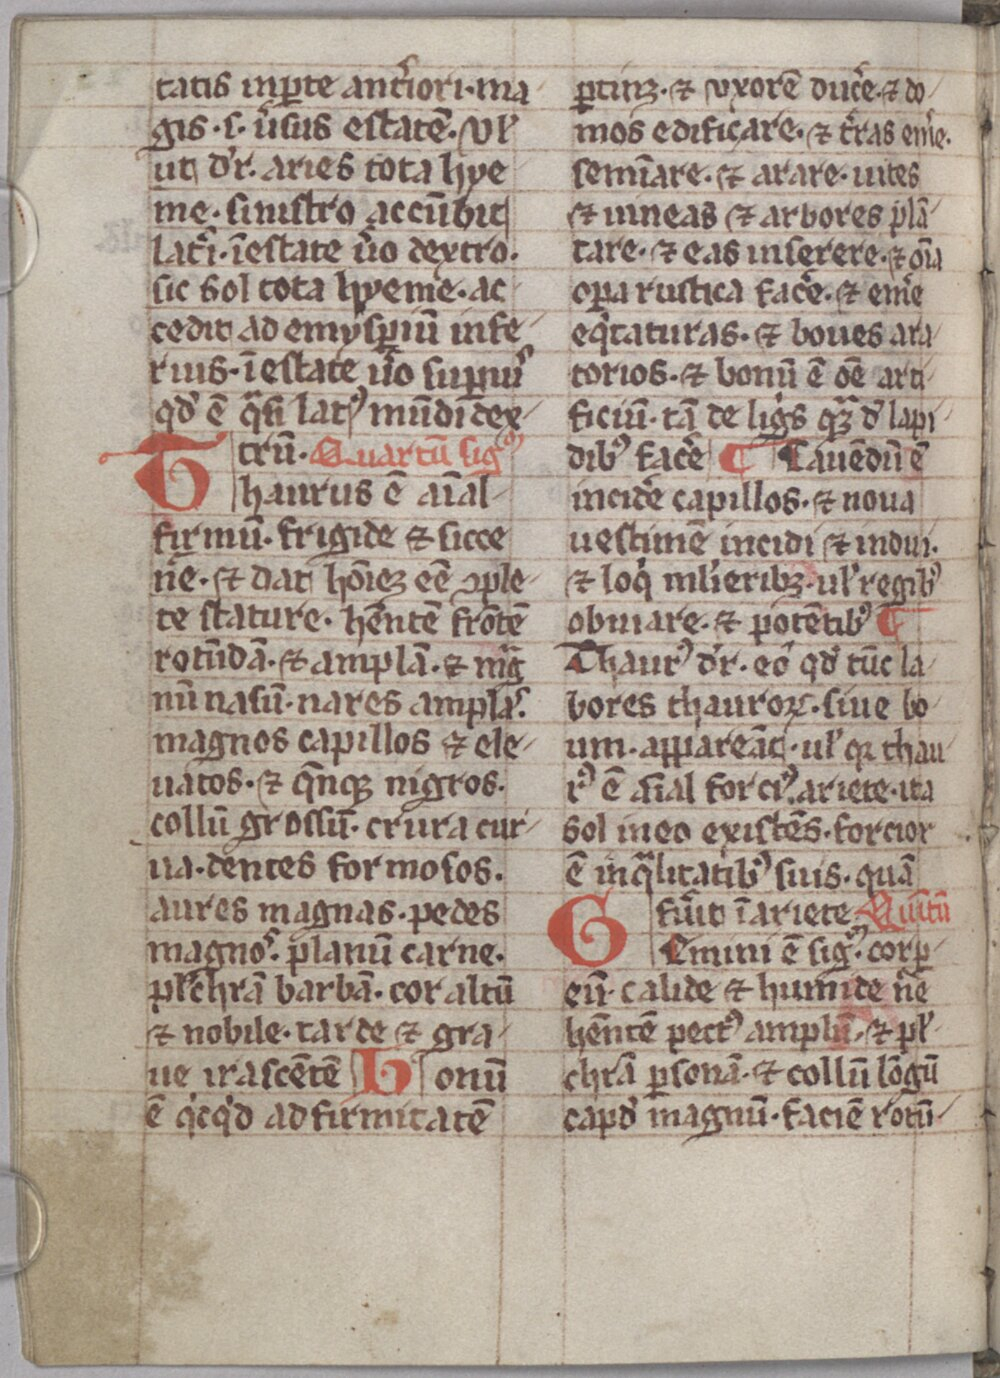 tatis inꝑte antiori·ma
gis·s· ūsus estatē. Vl̛
ut dr̄. aries tota hye
me· sinistro accūbit
lat̄i· īestate ūo dextro.
sic Sol tota hyeme· ac
cedit ad emyspiū infe
rius· īestate ūo supius
qd̛ ē q̄si latꝰ mūdi dex
trū. Quartū sigᵐ
Thaurus ē aīal
firmū. frigide ⁊ sicce
n̄e. ⁊ dat hōieꝫ eē ꝯple
te stature. hēntē frōtē
rotūdā. ⁊ amplā. ⁊ mg̃
nū nasū. nares amplas.
magnos capillos ⁊ ele
uatos. ⁊ qn̄qꝫ nigros.
collū grossū. crura cur
ua. dentes formosos.
aures magnas. pedes
magnos. planū carne.
pl̛chrā barbā. cor altū
⁊ nobile. tarde ⁊ gra
ue irascētē Bonū
ē qͥcqͥd ad firmitatē
ꝑtinꝫ. ⁊ vxorē ducē. ⁊ do
mos edificare. ⁊ t̄ras emē.
semīare. ⁊ arare. uites
⁊ uineas ⁊ arbores plā
tare. ⁊ eas inserere. ⁊ oīa
oꝑa rustica facē. ⁊ emē
eqͥtaturas. ⁊ boues ara
torios. ⁊ bonū ē oē arti
ficiū. tā de ligͥs qꝫ d̛ lapi
dibꝰ facē ¶ Cauēdū ē
incidē capillos. ⁊ noua
uestimē incidi ⁊ indui.
⁊ loqͥ ml̛ieribꝫ. ul̛ regibꝰ
obuiare. ⁊ potētibꝰ ¶
Thaurꝰ dr̄. eo qd̛ tūc la
bores thauroꝝ. siue bo
um. appareāt. ul̛ qꝛ thau
rꝰ ē aīal forciꝰ ariete. ita
Sol in eo existēs. forcior
ē in qͣlitatibꝰ suis. quā
fūit ī ariete. Quītū
Gemini ē sigᵐ. corp
eū. calide ⁊ humide n̄e
hēntē pectꝰ amplū. ⁊ pl̛
chrā ꝑsonā. ⁊ collū lōgū
capd̛ magnū. faciē rotū